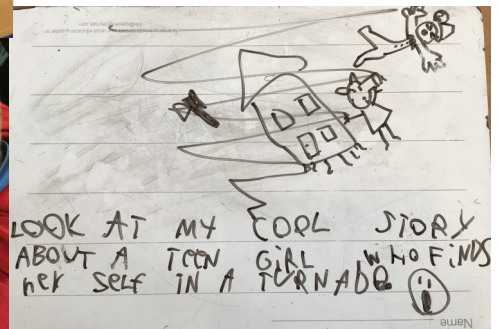 LOOK AT MY COOL STORY
ABOUT A TEEN GIRL WHO FINDS
her self IN A TURNADO
Name